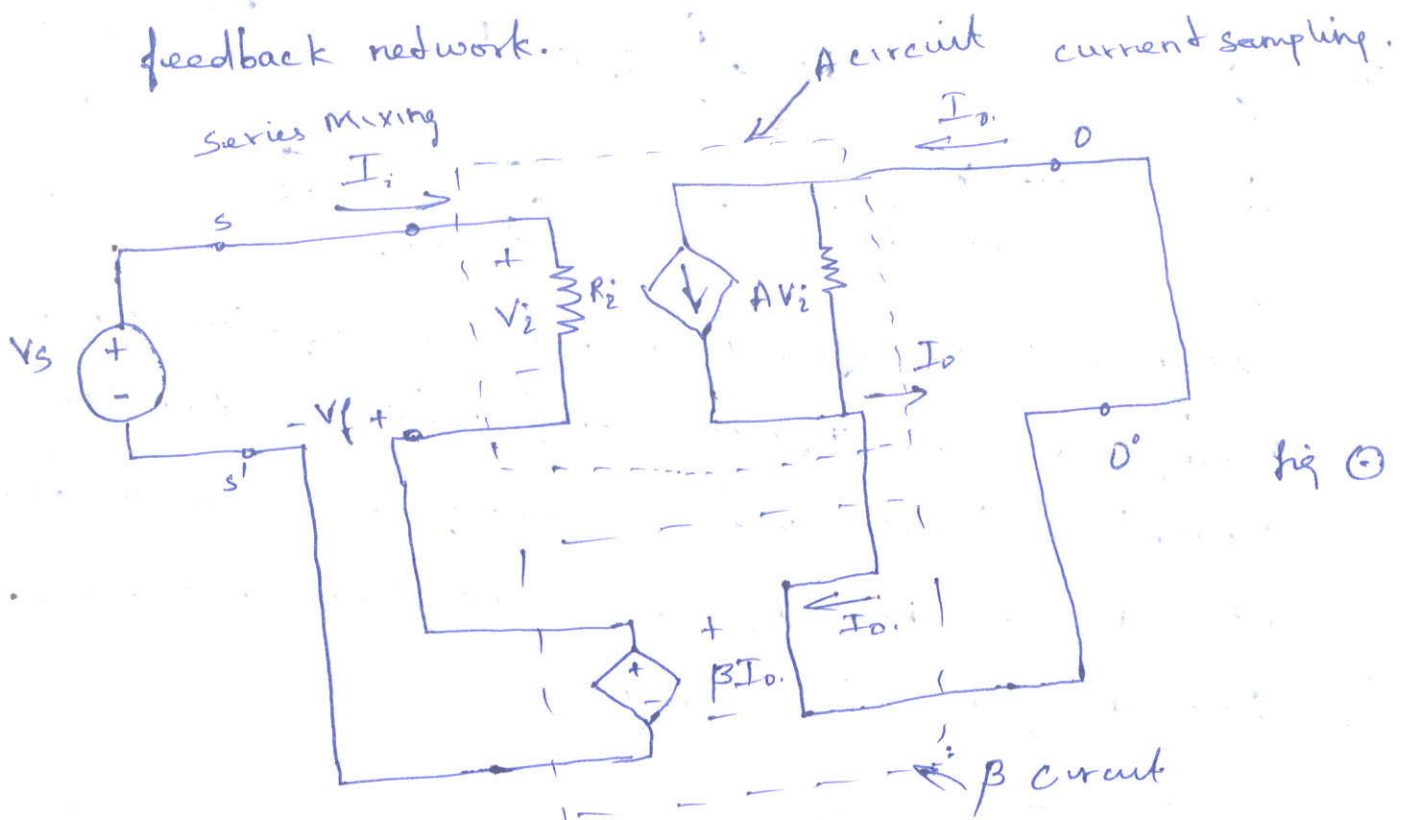 feedback network.
A circuit
current sampling.
series Mixing
I₀.
O
Iᵢ
s
+
Vᵢ
-
Rᵢ
AVᵢ
Vs
+
-
I₀
- Vf +
s'
O'
fig
I₀.
+
βI₀.
-
+
-
β circuit